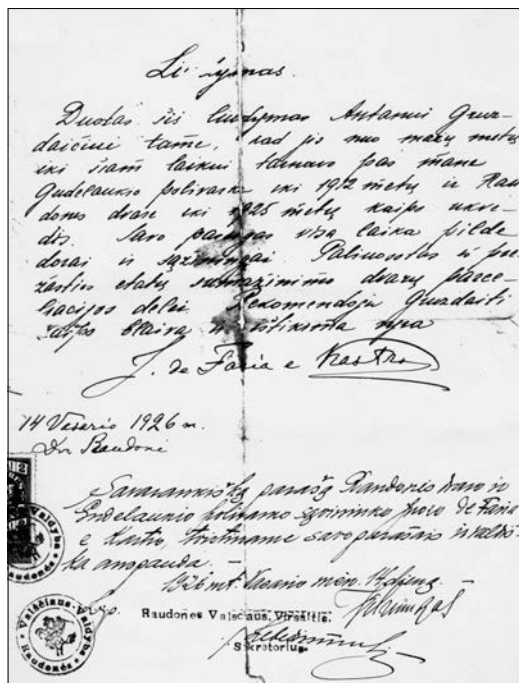 Duotas šis liudymas Antanui Gruz-
daičiui tame, kad jis nuo mažų metų
iki šiam laikui tarnavo pas mane
Gudelaukio polivarke iki 1912 metų ir Rau
donės dvare iki 1925 metų kaipo ukve-
dis. Savo pareigas visą laiką pildė
dorai ir sąžiningai. Paliuosotas iš prie
žasties etatų sumažinimo dvarų parce-
liacijos delei. Rekomenduoju Gruzdaiti
kaipo blaivą ir ištikimą vyrą
J. de Faria e Kastro
14 Vasario 1926 m.
Dv. Raudonė
Savarankišką parašą Raudonės dvaro ir
Gudelaukio polivarko savininko de Faria
e Kastro, tvirtiname savo parašais ir valdiš-
ka anspauda. —
1926 mt. Vasario mėn. 14 dieną
Raudonės Valsčiaus, Viršaitis.
Sekretorius.
Valsčiaus Valdyba
Raudonės